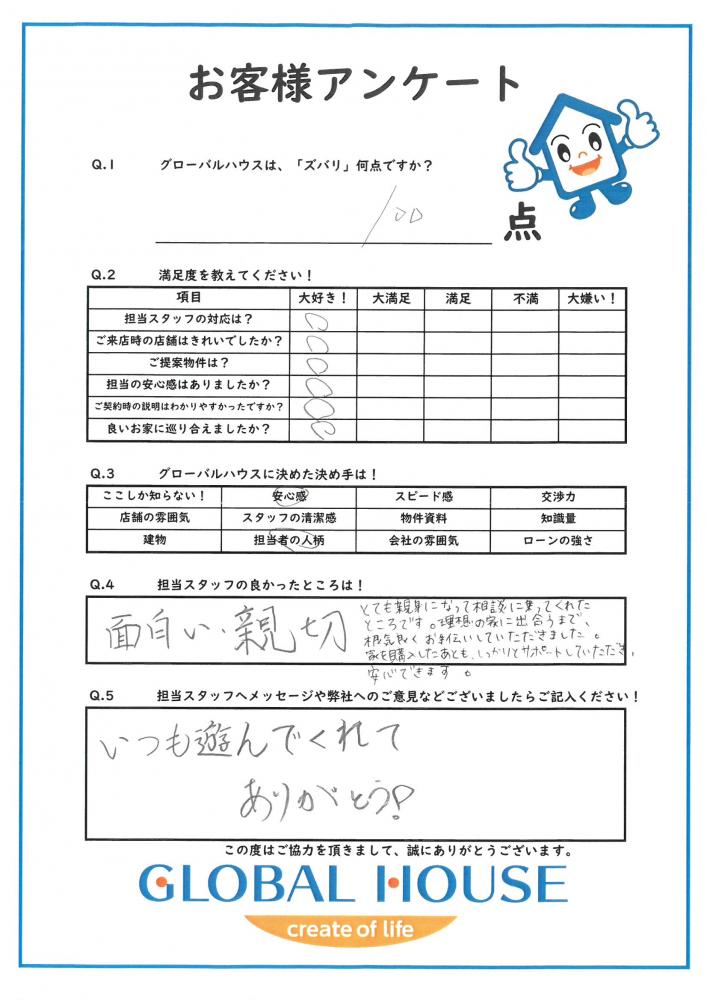 お客様アンケート
Q.1 グローバルハウスは、「ズバリ」何点ですか？
100
点
Q.2 満足度を教えてください！
項目 大好き！ 大満足 満足 不満 大嫌い！
担当スタッフの対応は？ ○
ご来店時の店舗はきれいでしたか？ ○
ご提案物件は？ ○
担当の安心感はありましたか？ ○
ご契約時の説明はわかりやすかったですか？ ○
良いお家に巡り合えましたか？ ○
Q.3 グローバルハウスに決めた決め手は！
ここしか知らない！ 安心感 スピード感 交渉力
店舗の雰囲気 スタッフの清潔感 物件資料 知識量
建物 担当者の人柄 会社の雰囲気 ローンの強さ
Q.4 担当スタッフの良かったところは！
面白い、親切
とても親身になって相談に乗ってくれた
ところです。理想の家に出合うまで、
根気良くお手伝いしていただきました。
家を購入したあとも、しっかりとサポートしていただき、
安心できます。
Q.5 担当スタッフへメッセージや弊社へのご意見などございましたらご記入ください！
いつも遊んでくれて
ありがとう！
この度はご協力を頂きまして、誠にありがとうございます。
GLOBAL HOUSE
create of life